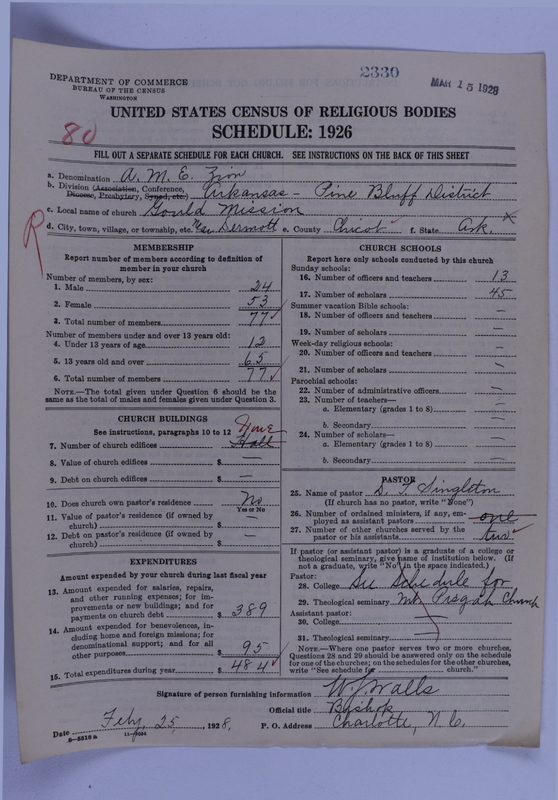 2330
MAR 15 1928
DEPARTMENT OF COMMERCE
BUREAU OF THE CENSUS
WASHINGTON
UNITED STATES CENSUS OF RELIGIOUS BODIES
SCHEDULE: 1926
80
FILL OUT A SEPARATE SCHEDULE FOR EACH CHURCH. SEE INSTRUCTIONS ON THE BACK OF THIS SHEET
a. Denomination A. M. E. Zion
b. Division (Association, Conference, Diocese, Presbytery, Synod, etc.) Arkansas - Pine Bluff District
c. Local name of church Gould Mission
d. City, town, village, or township, etc. Near Dermott e. County Chicot f. State Ark.
R
MEMBERSHIP
Report number of members according to definition of member in your church
Number of members, by sex:
1. Male 24
2. Female 53
3. Total number of members 77
Number of members under and over 13 years old:
4. Under 13 years of age 12
5. 13 years old and over 65
6. Total number of members 77
NOTE.—The total given under Question 6 should be the same as the total of males and females given under Question 3.
CHURCH BUILDINGS
See instructions, paragraphs 10 to 12
None
7. Number of church edifices Hall
8. Value of church edifices $ —
9. Debt on church edifices $ —
10. Does church own pastor's residence? No
Yes or No
11. Value of pastor's residence (if owned by church) $ —
12. Debt on pastor's residence (if owned by church) $ —
EXPENDITURES
Amount expended by your church during last fiscal year
13. Amount expended for salaries, repairs, and other running expenses; for improvements or new buildings; and for payments on church debt $ 389
14. Amount expended for benevolences, including home and foreign missions; for denominational support; and for all other purposes $ 95
15. Total expenditures during year $ 484
CHURCH SCHOOLS
Report here only schools conducted by this church
Sunday schools:
16. Number of officers and teachers 13
17. Number of scholars 45
Summer vacation Bible schools:
18. Number of officers and teachers —
19. Number of scholars —
Week-day religious schools:
20. Number of officers and teachers —
21. Number of scholars —
Parochial schools:
22. Number of administrative officers —
23. Number of teachers—
a. Elementary (grades 1 to 8) —
b. Secondary —
24. Number of scholars—
a. Elementary (grades 1 to 8) —
b. Secondary —
PASTOR
25. Name of pastor D. T. Singleton
(If church has no pastor, write "None")
26. Number of ordained ministers, if any, employed as assistant pastors one
27. Number of other churches served by the pastor or his assistants two
If pastor (or assistant pastor) is a graduate of a college or theological seminary, give name of institution below. (If not a graduate, write "No" in the space indicated.)
Pastor:
28. College See Schedule for
29. Theological seminary Mt Pisgah Church
Assistant pastor:
30. College —
31. Theological seminary —
NOTE.—Where one pastor serves two or more churches, Questions 28 and 29 should be answered only on the schedule for one of the churches; on the schedules for the other churches, write "See schedule for church."
Signature of person furnishing information W. J. Walls
Official title Bishop
Date Feby. 25, 1928. P. O. Address Charlotte, N. C.